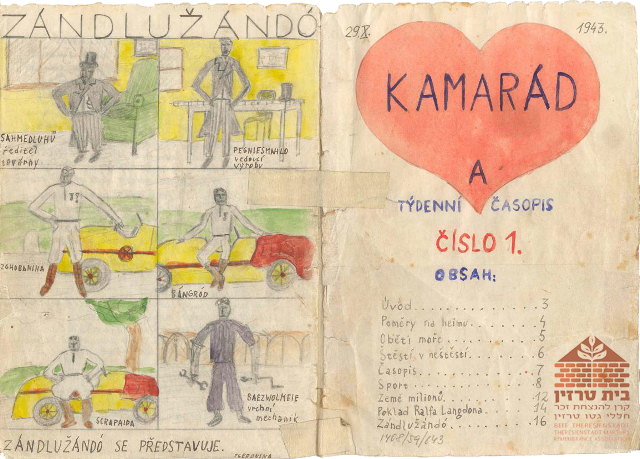 ZÁNDLUŽÁNDÓ
SAHMEDLUHŮ
ředitel
továrny
PEGNIESMAHLO
vedoucí
výroby
ZGHOBANINA
SÁNGRÓD
SCRAPAIDA
BAEZWOLMEIE
vrchní
mechanik
ZÁNDLUŽÁNDÓ SE PŘEDSTAVUJE.
29.X. 1943.
KAMARÁD
A
TÝDENNÍ ČASOPIS
ČÍSLO 1.
OBSAH:
Úvod . . . . . . . . . . . . . 3
Poměry na heimu . . . . . 4
Oběti moře . . . . . . . . . 5
Štěstí v neštěstí . . . . . . 6
Časopis . . . . . . . . . . . 7
Sport . . . . . . . . . . . . 8
Země milionů . . . . . . . 12
Poklad Ralfa Langdona . . 14
Zándlužándó . . . . . . . . 16
בית טרזין
קרן להנצחת זכר
חללי גטו טרזין
BEIT THERESIENSTADT
THERESIENSTADT MARTYRS
REMEMBRANCE ASSOCIATION